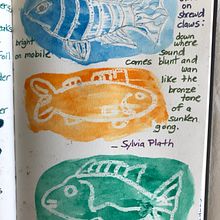 on
shrewd
claws:
bright
on mobile
down
where
sound
comes blunt and
wan
like the
bronze
tone
of a
sunken
gong.
— Sylvia Plath